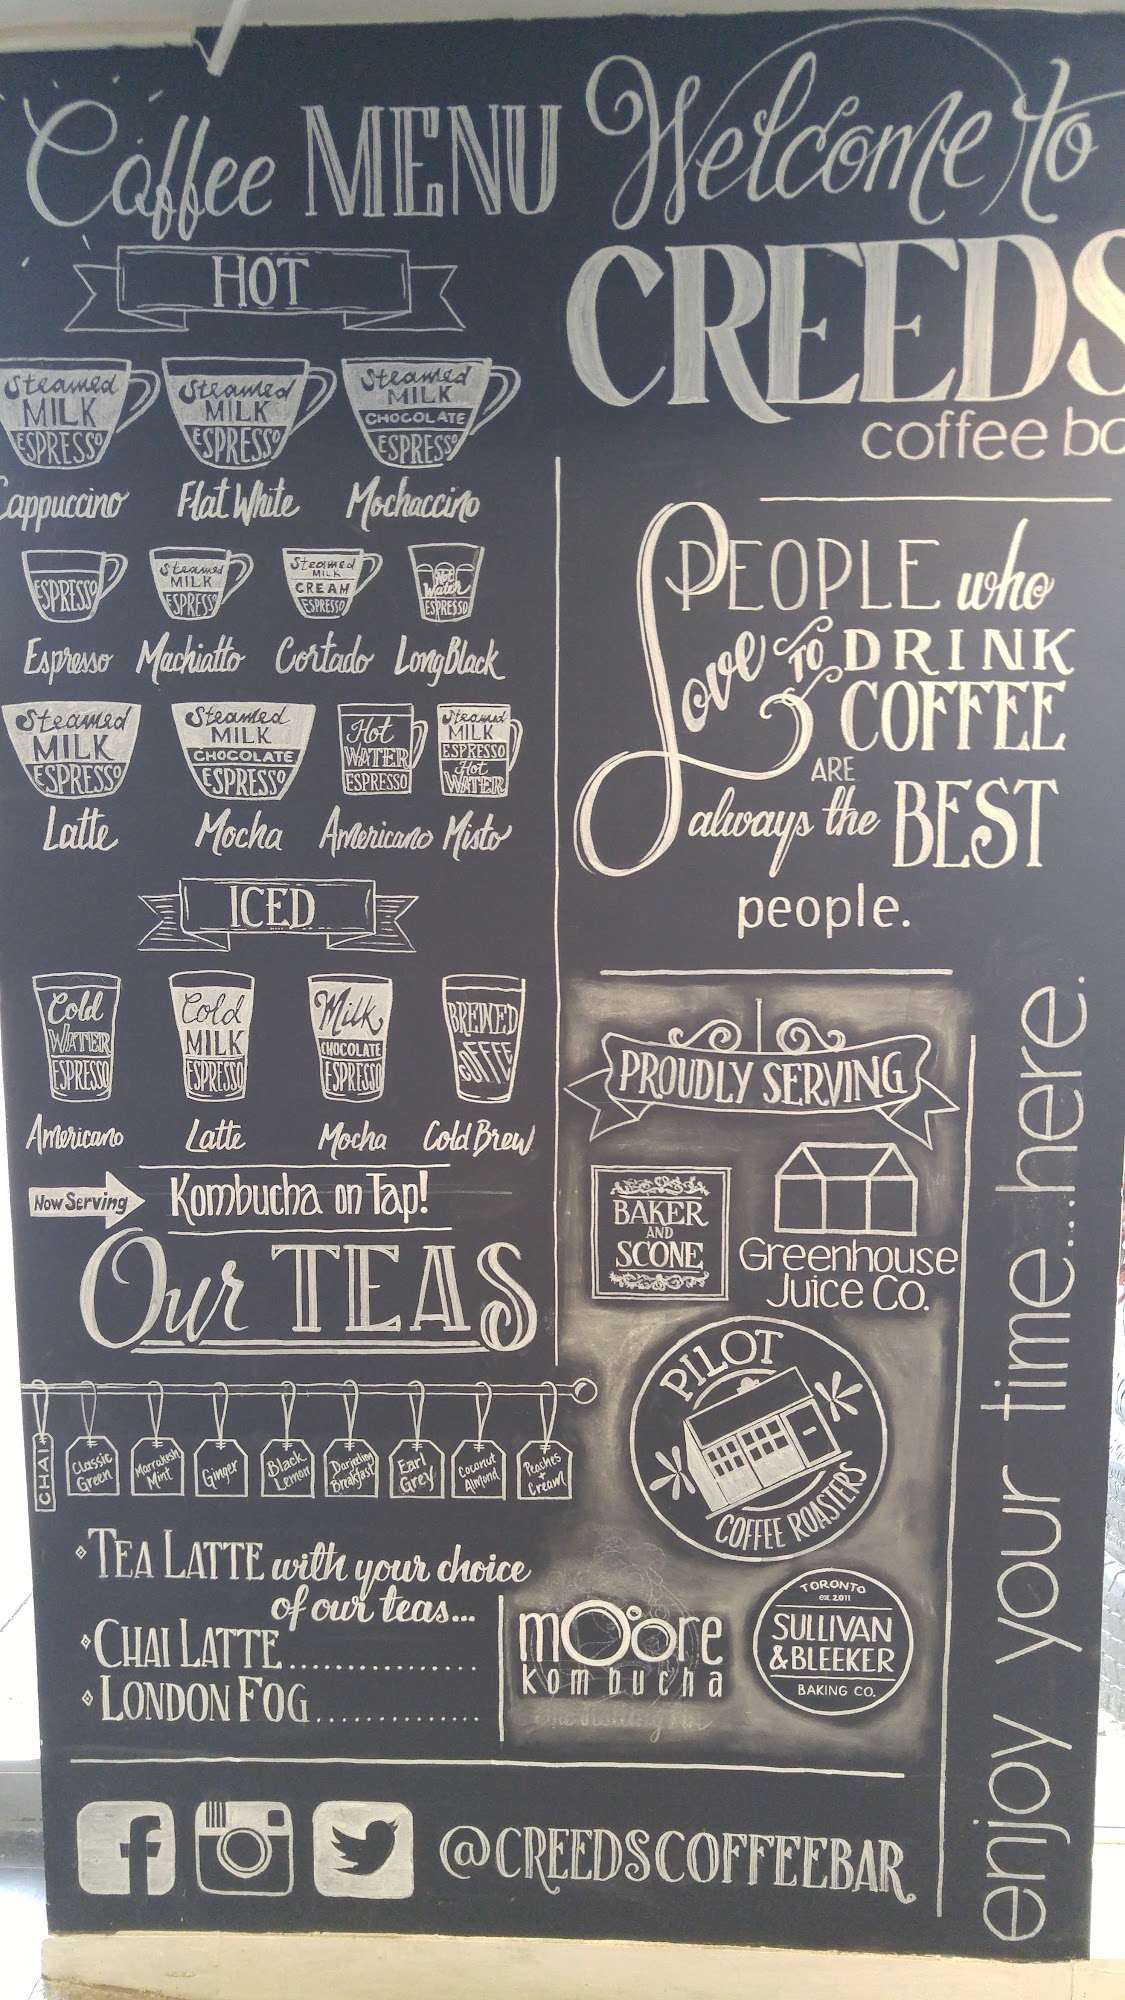 Coffee MENU
HOT
Steamed
MILK
ESPRESSO
Cappuccino
Steamed
MILK
ESPRESSO
Flat White
Steamed
MILK
CHOCOLATE
ESPRESSO
Mochaccino
ESPRESSO
Espresso
Steamed
MILK
ESPRESSO
Machiatto
Steamed
MILK
CREAM
ESPRESSO
Cortado
Hot
Water
ESPRESSO
Long Black
Steamed
MILK
ESPRESSO
Latte
Steamed
MILK
CHOCOLATE
ESPRESSO
Mocha
Hot
WATER
ESPRESSO
Americano
Steamed
MILK
ESPRESSO
Hot
WATER
Misto
ICED
Cold
WATER
ESPRESSO
Americano
Cold
MILK
ESPRESSO
Latte
Milk
CHOCOLATE
ESPRESSO
Mocha
BREWED
COFFEE
Cold Brew
Now Serving
Kombucha on Tap!
Our TEAS
CHAI
Classic
Green
Marrakesh
Mint
Ginger
Black
Lemon
Darjeeling
Breakfast
Earl
Grey
Coconut
Almond
Peaches
+
Cream
TEA LATTE with your choice
of our teas...
CHAI LATTE.................
LONDON FOG...............
Welcome to
CREEDS
coffee ba
PEOPLE who
Love TO DRINK
COFFEE
ARE
always the BEST
people.
PROUDLY SERVING
BAKER
AND
SCONE
Greenhouse
Juice Co.
PILOT
COFFEE ROASTERS
mOore
kombucha
TORONTO
est. 2011
SULLIVAN
& BLEEKER
BAKING CO.
enjoy your time....here.
@CREEDSCOFFEEBAR